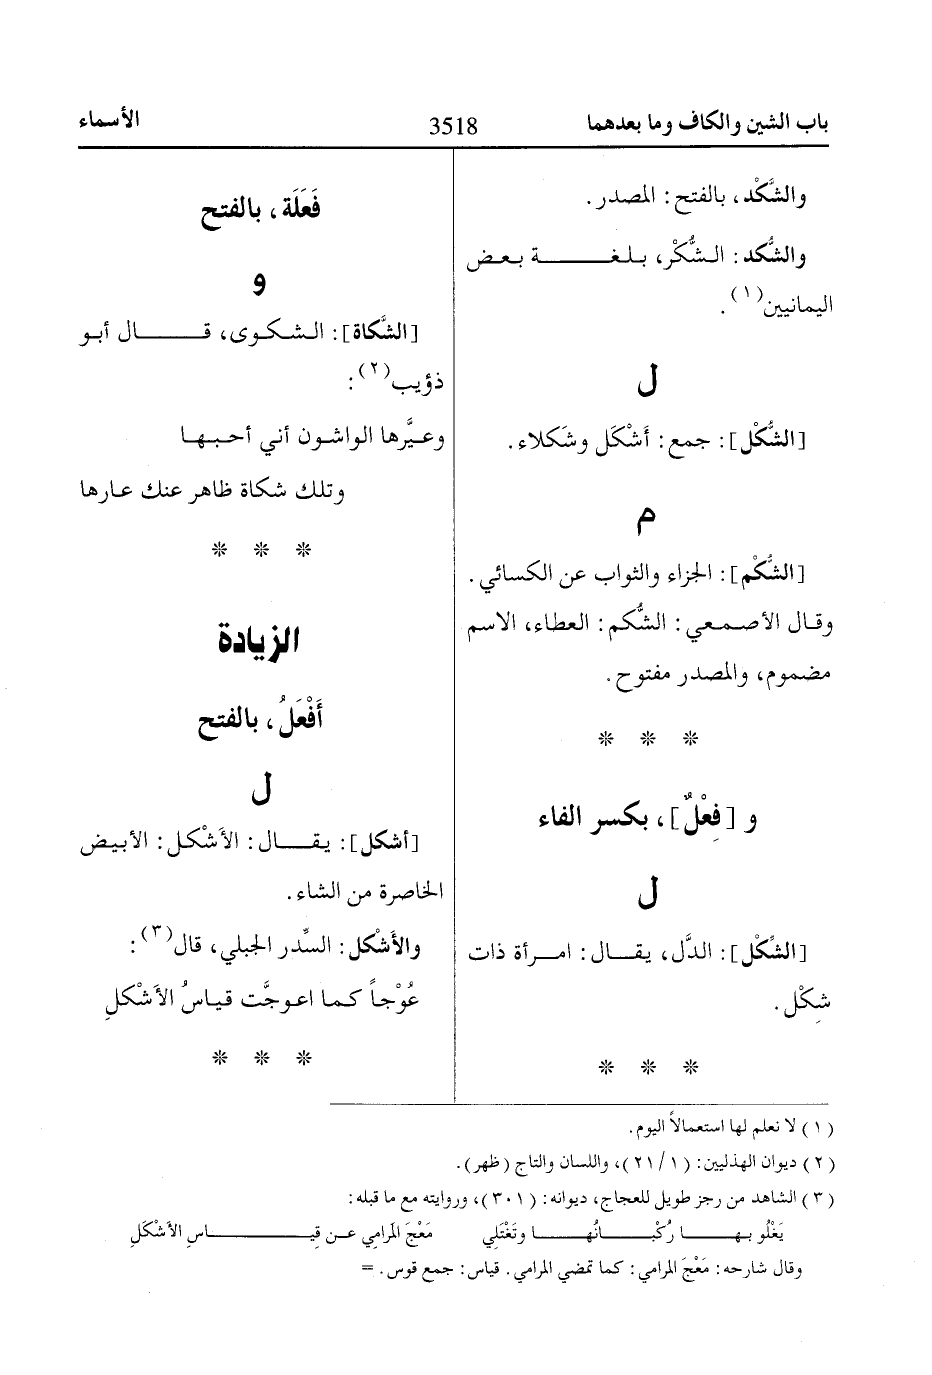 باب الشين والكاف وما بعدهما 3518 الأسماء
والشَّكْد، بالفتح: المصدر.
والشُّكد: الشُّكْر، بلغة بعض
اليمانيين(١).
ل
[الشُّكْل]: جمع: أَشْكَل وشَكلاء.
م
[الشُّكْم]: الجزاء والثواب عن الكسائي.
وقال الأصمعي: الشُّكم: العطاء، الاسم
مضموم، والمصدر مفتوح.
* * *
و [فِعْلٌ]، بكسر الفاء
ل
[الشِّكْل]: الدَّل، يقال: امرأة ذات
شِكْل.
* * *
فَعَلَة، بالفتح
و
[الشَّكاة]: الشكوى، قال أبو
ذؤيب(٢):
وعيَّرها الواشون أني أحبها
وتلك شكاة ظاهر عنك عارها
* * *
الزيادة
أَفْعَلُ، بالفتح
ل
[أشكل]: يقال: الأَشْكل: الأبيض
الخاصرة من الشاء.
والأَشْكل: السِّدر الجبلي، قال(٣):
عُوْجاً كما اعوجَّت قياسُ الأَشْكلِ
* * *
(١) لا نعلم لها استعمالاً اليوم.
(٢) ديوان الهذليين: (١/ ٢١)، واللسان والتاج (ظهر).
(٣) الشاهد من رجز طويل للعجاج، ديوانه: (٣٠١)، وروايته مع ما قبله:
يَغْلُو بها رُكْبانُها وتَغْتَلِي مَعْجَ المَرامِي عن قِياسِ الأَشْكَلِ
وقال شارحه: مَعْجَ المرامي: كما تمضي المرامي. قياس: جمع قوس. =